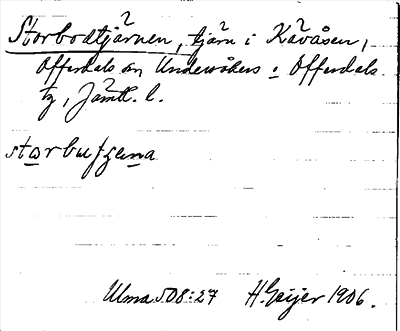 Storbodtjärnen, tjärn i Kävåsen,
Offerdals sn Undersåkers o Offerdals
tg, Jämtl. l.
Ulma 508:27 H. Geijer 1906.